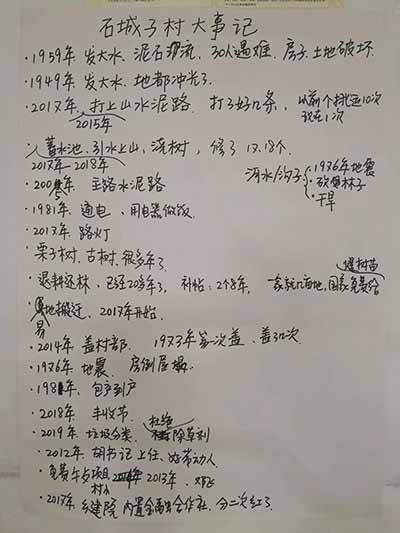 石城子村大事记
·1959年 发大水、泥石流, 30人遇难. 房子.土地破坏
·1949年 发大水、地都冲光了
·2017年, 打上山水泥路. 打了好几条, 以前个挑运10次
2015年 现在1次
蓄水池. 引水上山, 浇树, 修了17.18个.
2017年-2018年
·200年. 主路水泥路 河水/沟子 ·1976年地震
·砍园林子
·干旱
·1981年. 通电、用电器做饭
·2017年. 路灯
栗子树. 古树. 很多年了
·退耕还林、已经20多年了, 补帖: 2个8年, 一家就几亩地, 国家免费给
树苗
易地搬迁、2017年开始.
·2014年. 盖村部. 1973年第一次盖、盖3次
·1976年. 地震. 房倒屋塌
·198年. 包产到户
·2018年 丰收节. 杜绝
·2019年. 垃圾分类. 除草剂
·2012年. 胡书记上任、好带动人
·免费午 项目 2013年.
村人
·2017年. 乡建院 内置金融合作社. 分二次红了